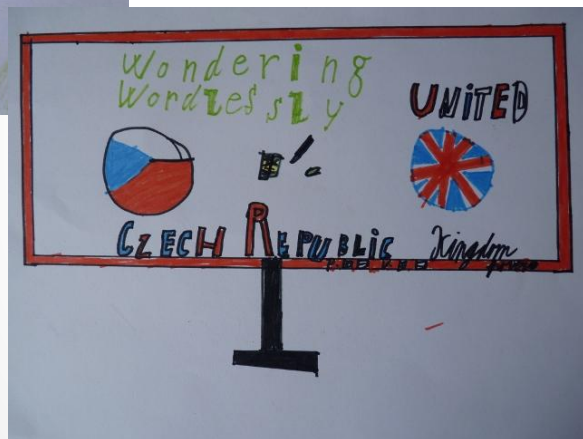 Wondering
Wordlessly
UNiTED
CZECH REPUBLIC Kingdom